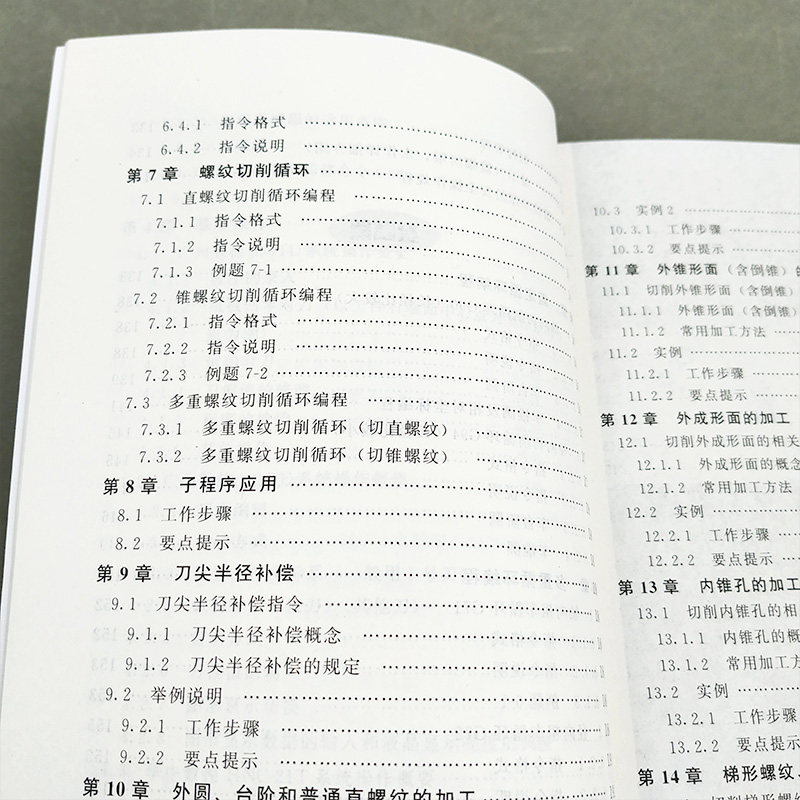 6.4.1 指令格式
6.4.2 指令说明
第7章 螺纹切削循环
7.1 直螺纹切削循环编程
7.1.1 指令格式
7.1.2 指令说明
7.1.3 例题7-1
7.2 锥螺纹切削循环编程
7.2.1 指令格式
7.2.2 指令说明
7.2.3 例题7-2
7.3 多重螺纹切削循环编程
7.3.1 多重螺纹切削循环（切直螺纹）
7.3.2 多重螺纹切削循环（切锥螺纹）
第8章 子程序应用
8.1 工作步骤
8.2 要点提示
第9章 刀尖半径补偿
9.1 刀尖半径补偿指令
9.1.1 刀尖半径补偿概念
9.1.2 刀尖半径补偿的规定
9.2 举例说明
9.2.1 工作步骤
9.2.2 要点提示
第10章 外圆、台阶和普通直螺纹的加工
10.3 实例2
10.3.1 工作步骤
10.3.2 要点提示
第11章 外锥形面（含倒锥）
11.1 切削外锥形面（含倒锥）
11.1.1 外锥形面（含倒锥）
11.1.2 常用加工方法
11.2 实例
11.2.1 工作步骤
11.2.2 要点提示
第12章 外成形面的加工
12.1 切削外成形面的相关
12.1.1 外成形面的概念
12.1.2 常用加工方法
12.2 实例
12.2.1 工作步骤
12.2.2 要点提示
第13章 内锥孔的加工
13.1 切削内锥孔的相
13.1.1 内锥孔的概
13.1.2 常用加工方
13.2 实例
13.2.1 工作步骤
13.2.2 要点提示
第14章 梯形螺纹、
切削梯形螺